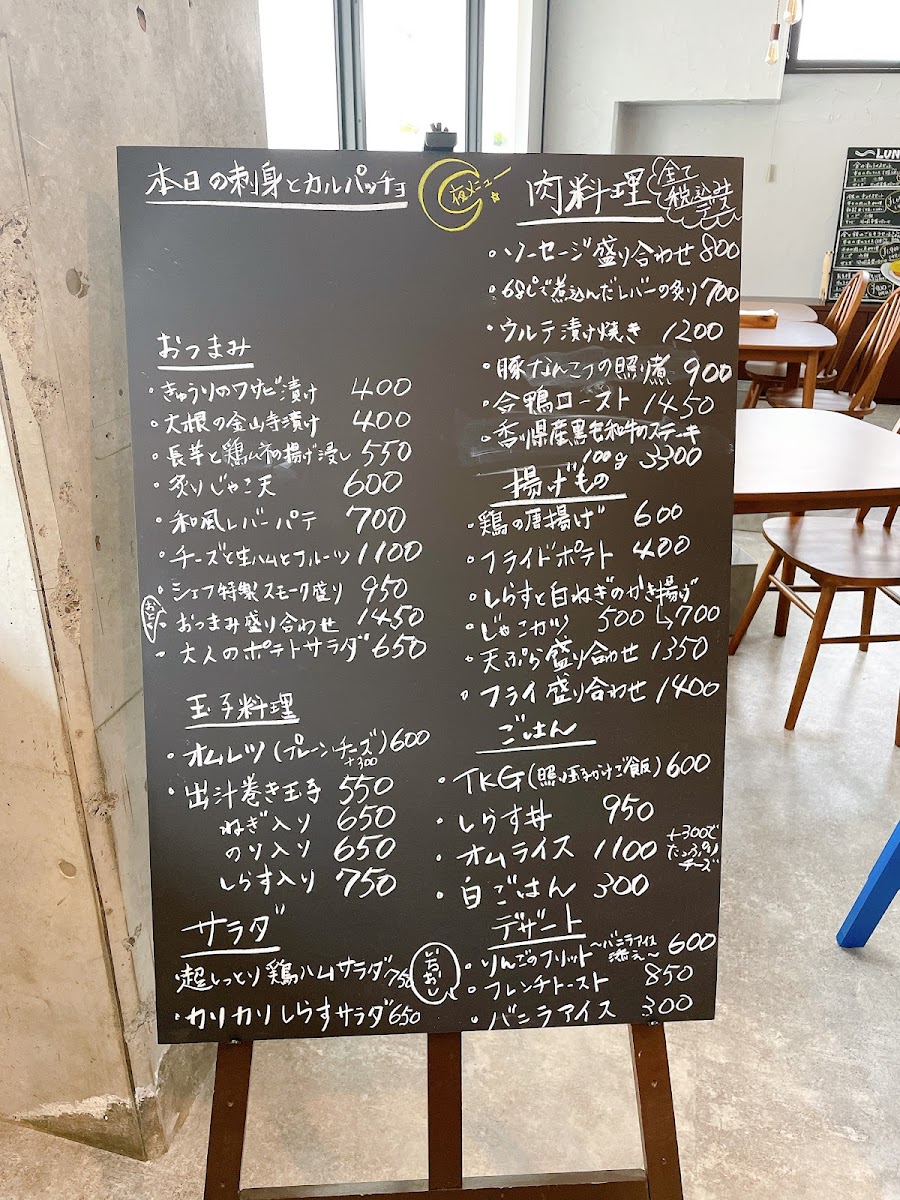 本日の刺身とカルパッチョ
夜メニュー
おつまみ
・きゅうりのワサビ漬け 400
・大根の金山寺漬け 400
・長芋と鶏ハネの揚げ浸し 550
・炙りじゃこ天 600
・和風レバーパテ 700
・チーズと生ハムとフルーツ 1100
・シェフ特製スモーク盛り 950
・おつまみ盛り合わせ 1450
・大人のポテトサラダ 650
玉子料理
・オムレツ(プレーン、チーズ) 600
+300
・出汁巻き玉子 550
ねぎ入り 650
のり入り 650
しらす入り 750
サラダ
超しっとり鶏ハムサラダ 750
・カリカリしらすサラダ 650
肉料理
全て
税込みです
・ソーセージ盛り合わせ 800
・68℃で煮込んだレバーの炙り 700
・ウルテ漬け焼き 1200
・豚なんこつの照り煮 900
・合鴨ロースト 1450
・香川県産黒毛和牛のステーキ
100g 3300
揚げもの
・鶏の唐揚げ 600
・フライドポテト 400
・しらすと白ねぎのかき揚げ
↳700
・じゃこカツ 500
・天ぷら盛り合わせ 1350
・フライ盛り合わせ 1400
ごはん
・TKG(照り玉子かけご飯) 600
・しらす丼 950
・オムライス 1100
+300で
たっぷり
チーズ
・白ごはん 300
デザート
いちおし
・りんごのフリット 〜バニラアイス
添え〜 600
・フレンチトースト 850
・バニラアイス 300
LUN